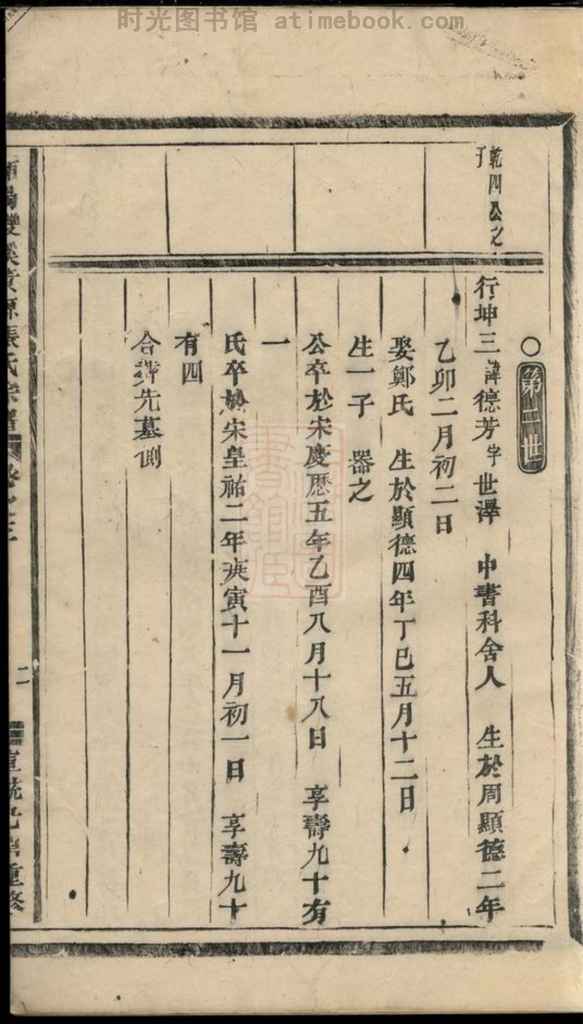 时光图书馆 atimebook.com
第二世
乾四公之
子
行坤三 諱德芳字世澤 中書科舍人 生於周顯德二年
乙卯二月初二日
娶鄭氏 生於顯德四年丁巳五月十二日
生一子 器之
公卒於宋慶歷五年乙酉八月十八日 享壽九十有
一
氏卒於宋皇祐二年庚寅十一月初一日 享壽九十
有四
合葬先墓側
張氏宗譜
二
宣統元年重修